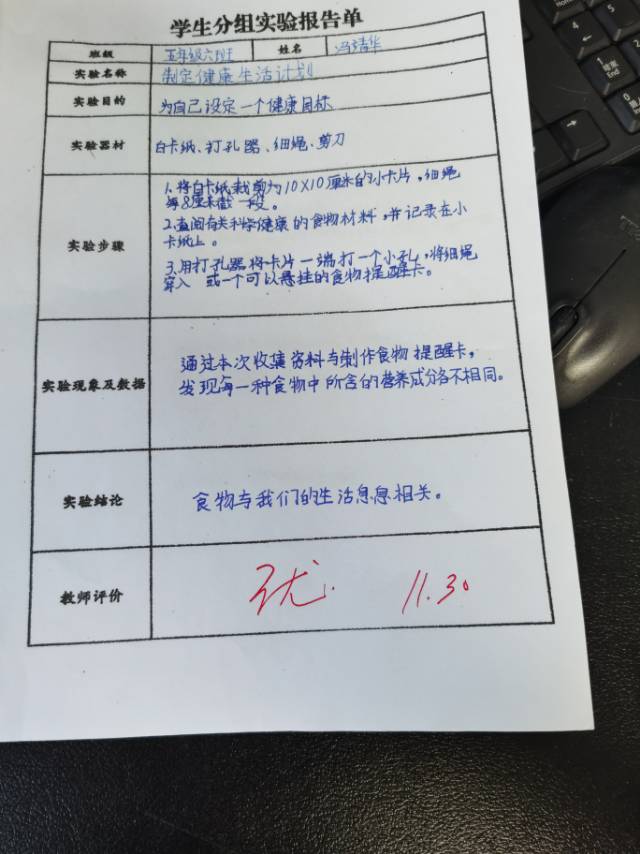 学生分组实验报告单
班级 五年级六班 姓名 冯清华
实验名称 制定健康生活计划
实验目的 为自己设定一个健康目标
实验器材 白卡纸、打孔器、细绳、剪刀
实验步骤
1.将白卡纸裁剪为10X10厘米的小卡片,细绳
每8厘米截一段。
2.查阅有关科学健康的食物材料,并记录在小
卡纸上。
3.用打孔器将卡片一端打一个小孔,将细绳
穿入 成一个可以悬挂的食物提醒卡。
实验现象及数据
通过本次收集资料与制作食物提醒卡,
发现每一种食物中所含的营养成分各不相同。
实验结论 食物与我们的生活息息相关。
教师评价 优. 11.30